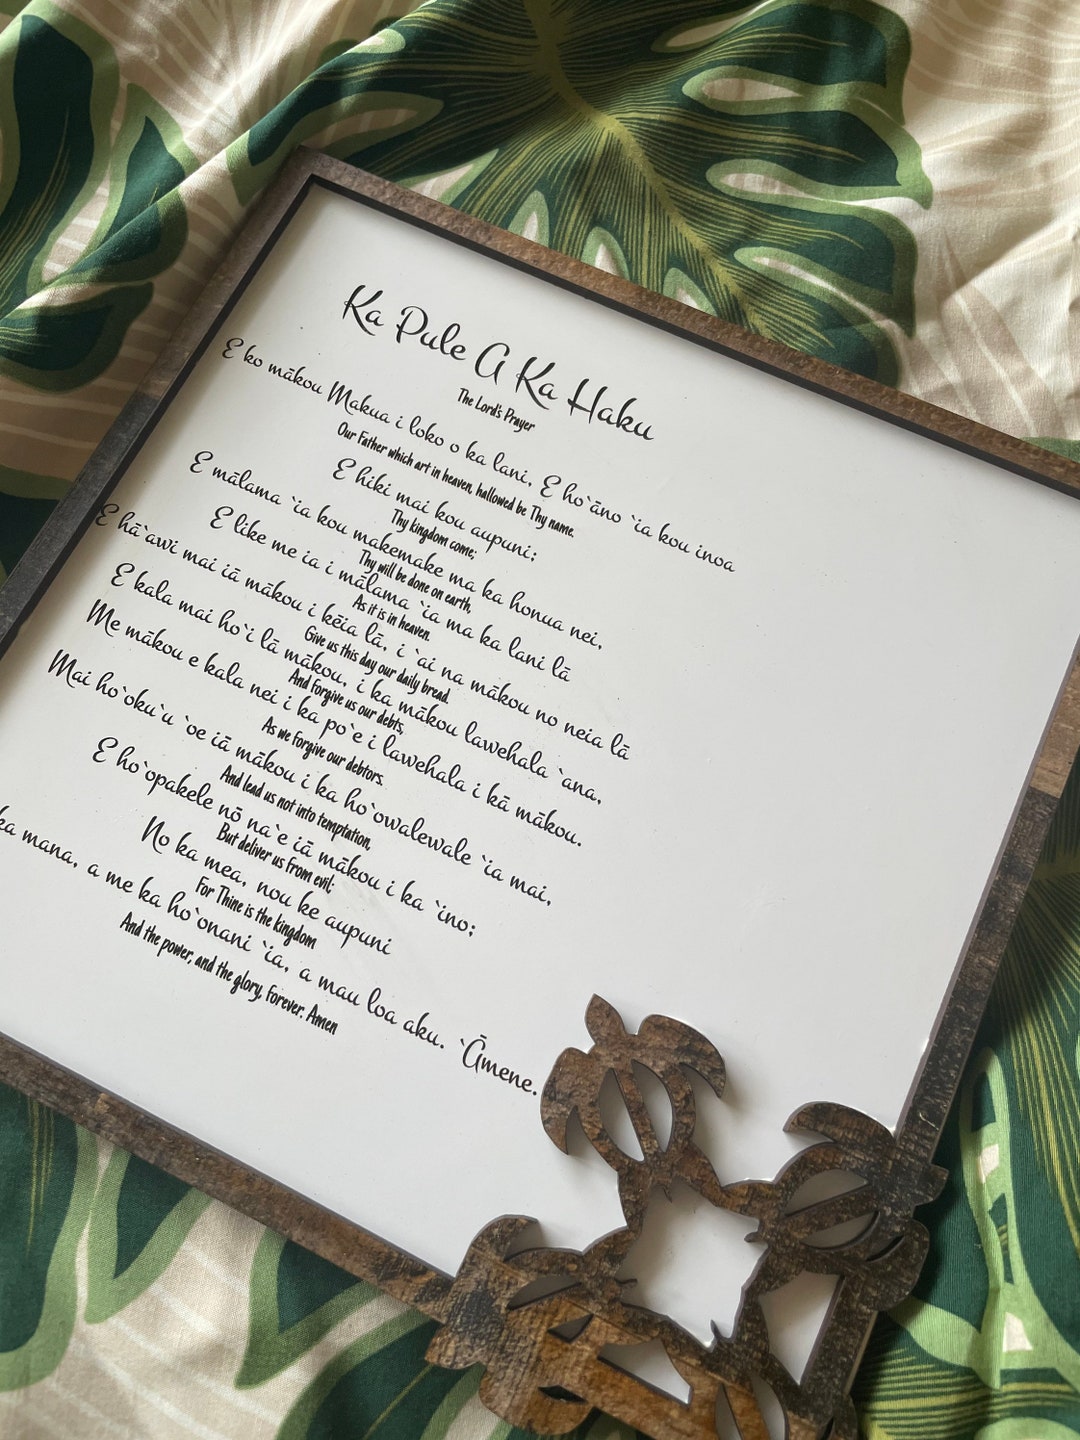 Ka Pule A Ka Haku
The Lord's Prayer
E ko mākou Makua i loko o ka lani, E ho`āno `ia kou inoa
Our Father which art in heaven, hallowed be Thy name.
E hiki mai kou aupuni;
Thy kingdom come;
E mālama `ia kou makemake ma ka honua nei,
Thy will be done on earth,
E like me ia i mālama `ia ma ka lani lā
As it is in heaven.
E hā`awi mai iā mākou i kēia lā, i `ai na mākou no neia lā
Give us this day our daily bread.
E kala mai ho`i lā mākou, i ka mākou lawehala `ana,
And forgive us our debts,
Me mākou e kala nei i ka po`e i lawehala i kā mākou.
As we forgive our debtors.
Mai ho`oku`u `oe iā mākou i ka ho`owalewale `ia mai,
And lead us not into temptation,
E ho`opakele nō na`e iā mākou i ka `ino;
But deliver us from evil;
No ka mea, nou ke aupuni
For Thine is the kingdom
ka mana, a me ka ho`onani `ia, a mau loa aku. `Āmene.
And the power, and the glory, forever. Amen